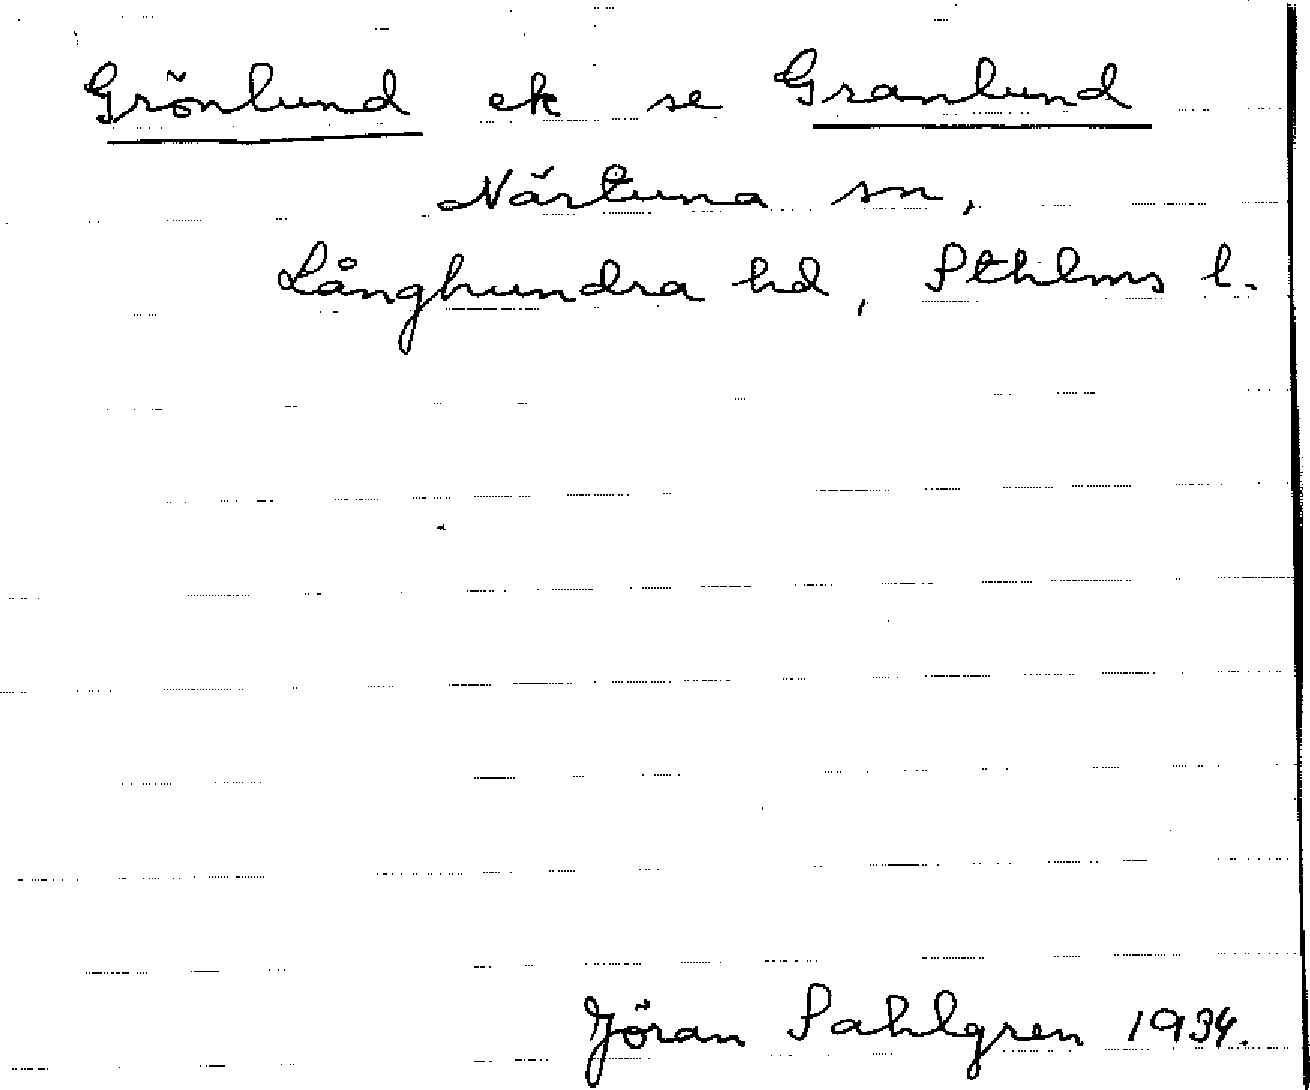 Grönlund ek se Granlund
Närtuna sn,
Långhundra hd, Sthlms l.
Jöran Sahlgren 1934.